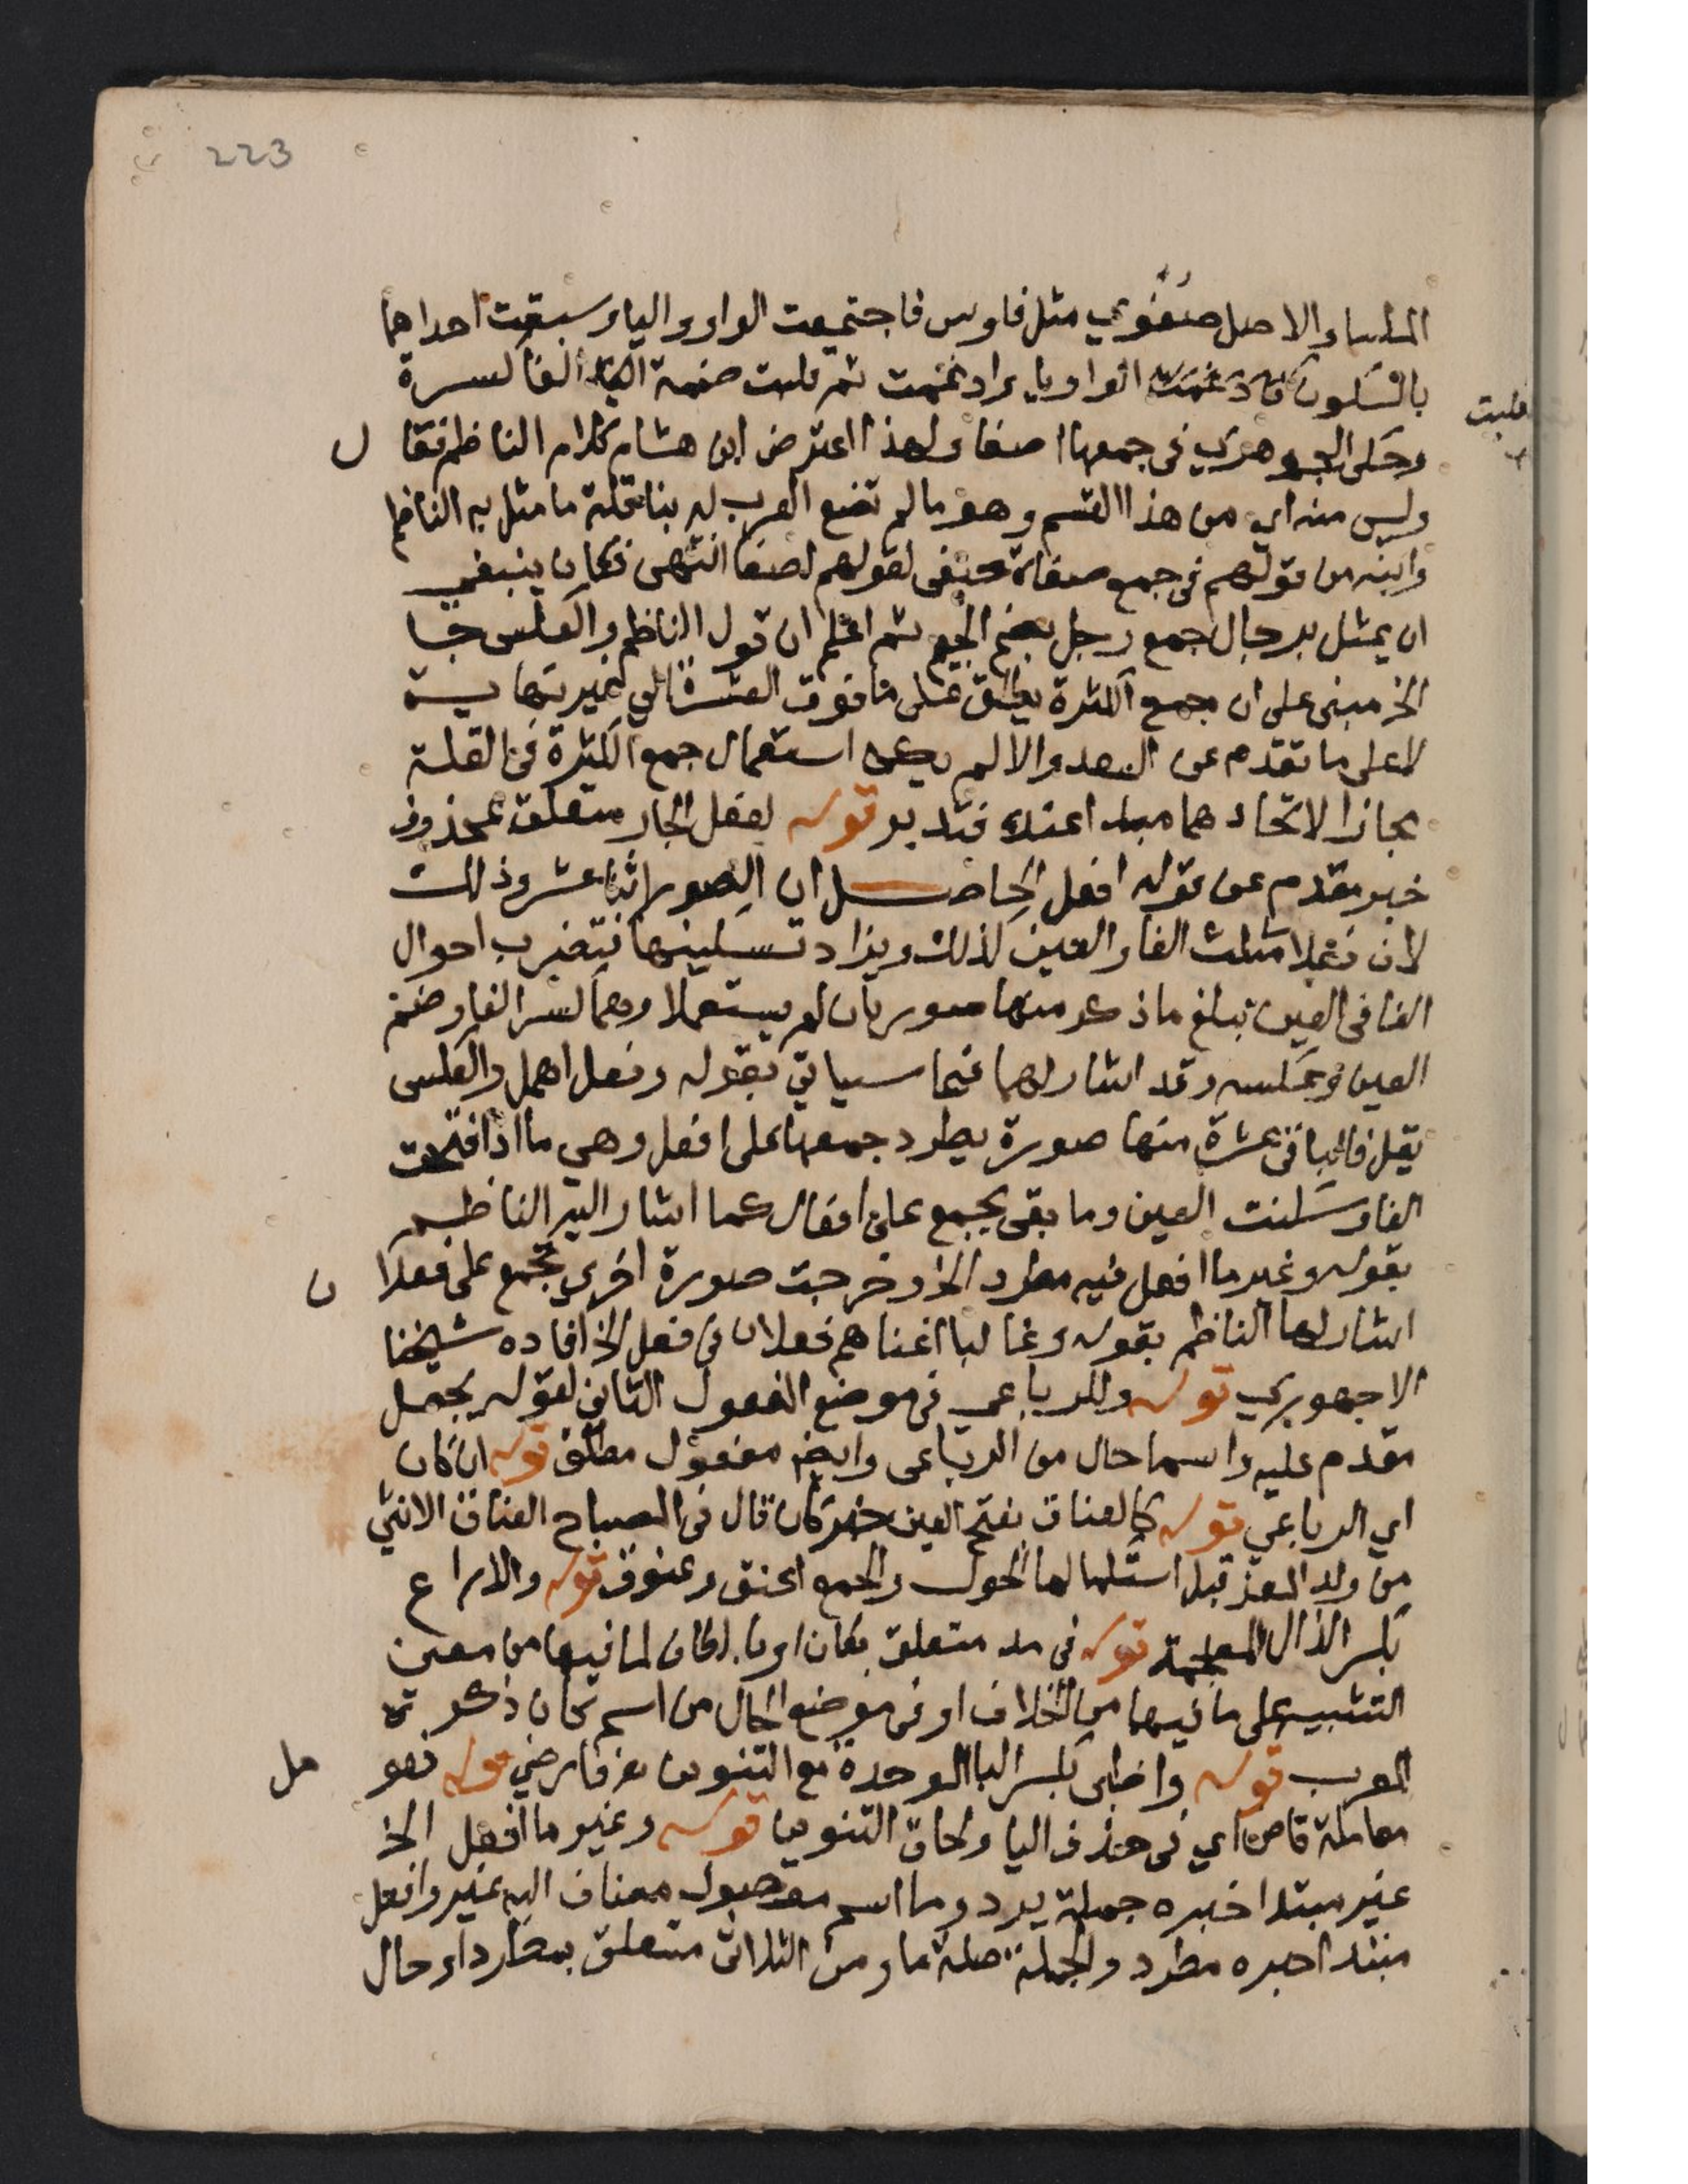 223
الملسا والاصل صفوي مثل فلوس فاجتمعت الواو واليا وسبقت احداهما
بالسكون فادغمت الواو يا وادغمت ثم قلبت ضمة الفا كسرة
قلبت
وحكى الجوهري في جمعها اصفا ولهذا اعترض ابن هشام كلام الناظم فقال
وليس منه اي من هذا القسم وهو ما لم تضع العرب له بنا قلة ما مثل به الناظم
وابنه من قولهم في جمع صفاة صفى لقولهم اصفا انتهى فكان ينبغي
ان يمثل برجال جمع رجل بضم الجيم ثم اعلم ان قول الناظم والعكس جا
الخ مبني على ان جمع الكثرة يطلق على ما فوق العشرة الى غير نهاية
لا على ما تقدم عن السعد والا لم يكن استعمال جمع الكثرة في القلة
مجازا لاتحادهما مبدا عنده فتدبر قوله لفعل الجار متعلق بمحذوف
خبر مقدم عن قوله افعل الحاصل ان الصور اثنا عشر وذلك
لان فعلا مثلث الفا والعين كذلك ويزاد تسكينها فتضرب احوال
الفا في العين تبلغ ما ذكر منها صورتان لم يستعملا وهما كسر الفا وضم
العين وعكسه وقد اشار لهما فيما سياتي بقوله وفعل اهمل والعكس
يقل فالباقي عشرة منها صورة يطرد جمعها على افعل وهي ما اذا فتحت
الفا وسكنت العين وما بقى يجمع على افعال كما اشار اليه الناظم
بقوله وغير ما افعل فيه مطرد الخ وخرجت صورة اخرى تجمع على فعلان
اشار لها الناظم بقوله وغالبا اغناهم فعلان في فعل الخ افاده شيخنا
الاجهوري قوله وللرباعي في موضع المفعول الثاني لقوله يجعل
مقدم عليه واسما حال من الرباعي وايضا مفعول مطلق قوله ان كان
اي الرباعي قوله كالعناق بفتح العين قال في المصباح العناق الانثى
من ولد المعز قبل استكمالها الحول والجمع اعنق وعنوق قوله والذراع
بكسر الذال المعجمة قوله في مد متعلق بكان او بالكاف لما فيها من معنى
التشبيه على ما فيها من الخلاف او في موضع الحال من اسم كان ذكره
المعرب قوله واظبى بكسر البا الموحدة مع التنوين قوله فهو
معاملة قاض اي في حذف اليا ولحاق التنوين قوله وغير ما افعل الخ
غير مبتدا خبره جملة يرد وما اسم موصول مضاف اليه غير وافعل
مبتدا خبره مطرد والجملة صلة ما ومن الثلاثي متعلق بمطرد او حال